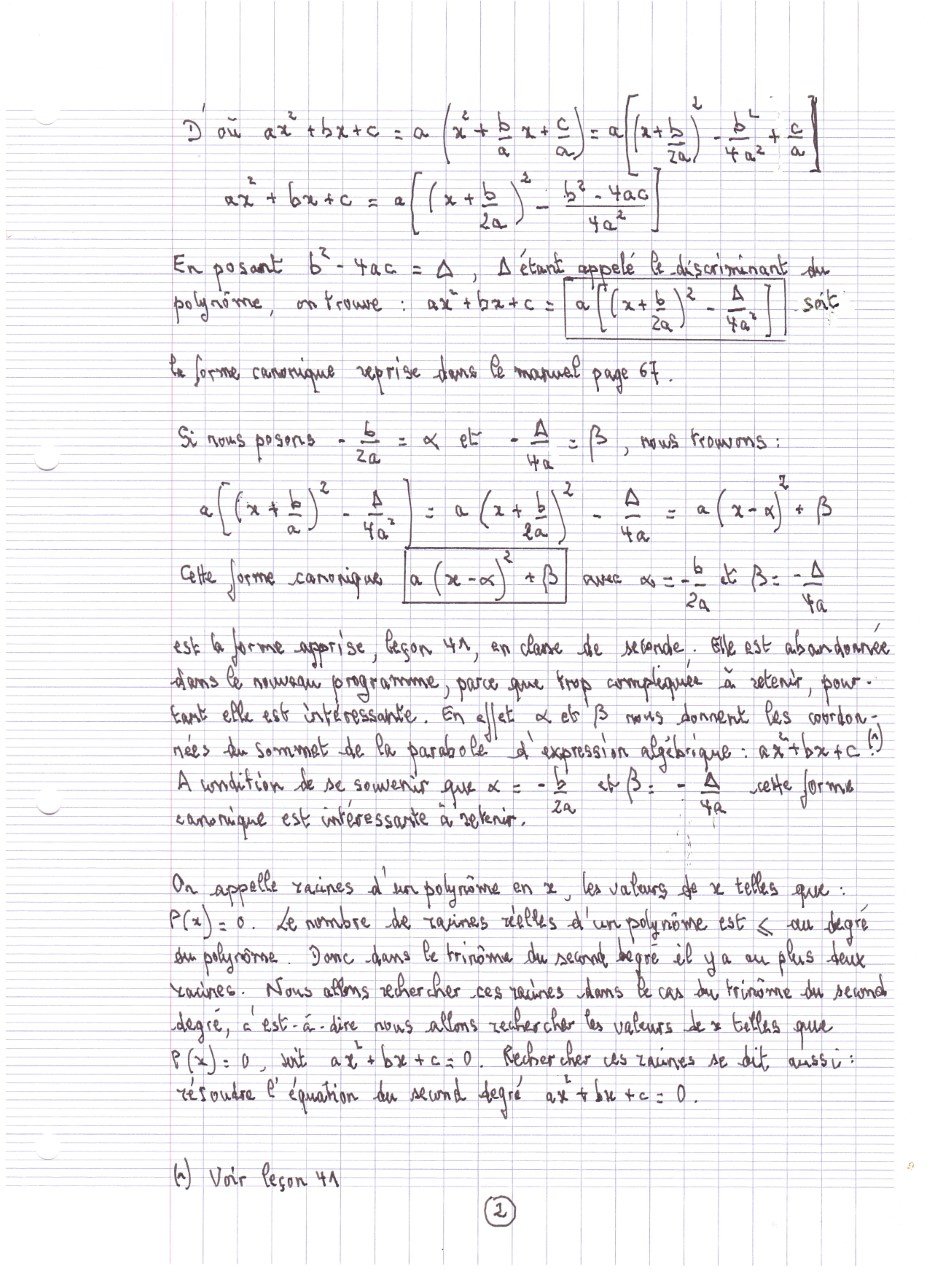 D'où ax² + bx + c = a (x² + b/a x + c/a) = a[(x + b/2a)² - b²/4a² + c/a]
ax² + bx + c = a[(x + b/2a)² - (b² - 4ac)/4a²]
En posant b² - 4ac = Δ, Δ étant appelé le discriminant du
polynôme, on trouve : ax² + bx + c = a[(x + b/2a)² - Δ/4a²] soit
la forme canonique reprise dans le manuel page 67.
Si nous posons - b/2a = α et - Δ/4a = β, nous trouvons :
a[(x + b/a)² - Δ/4a²] = a (x + b/2a)² - Δ/4a = a (x - α)² + β
Cette forme canonique a (x - α)² + β avec α = - b/2a et β = - Δ/4a
est la forme apprise, leçon 41, en classe de seconde. Elle est abandonnée
dans le nouveau programme, parce que trop compliquée à retenir, pour-
tant elle est intéressante. En effet α et β nous donnent les coordon-
nées du sommet de la parabole d'expression algébrique : ax² + bx + c (1)
A condition de se souvenir que α = - b/2a et β = - Δ/4a cette forme
canonique est intéressante à retenir.
On appelle racines d'un polynôme en x, les valeurs de x telles que :
P(x) = 0. Le nombre de racines réelles d'un polynôme est ⩽ au degré
du polynôme. Donc dans le trinôme du second degré il y a au plus deux
racines. Nous allons rechercher ces racines dans le cas du trinôme du second
degré, c'est-à-dire nous allons rechercher les valeurs de x telles que
P(x) = 0, soit ax² + bx + c = 0. Rechercher ces racines se dit aussi :
résoudre l'équation du second degré ax² + bx + c = 0.
(1) Voir leçon 41
2